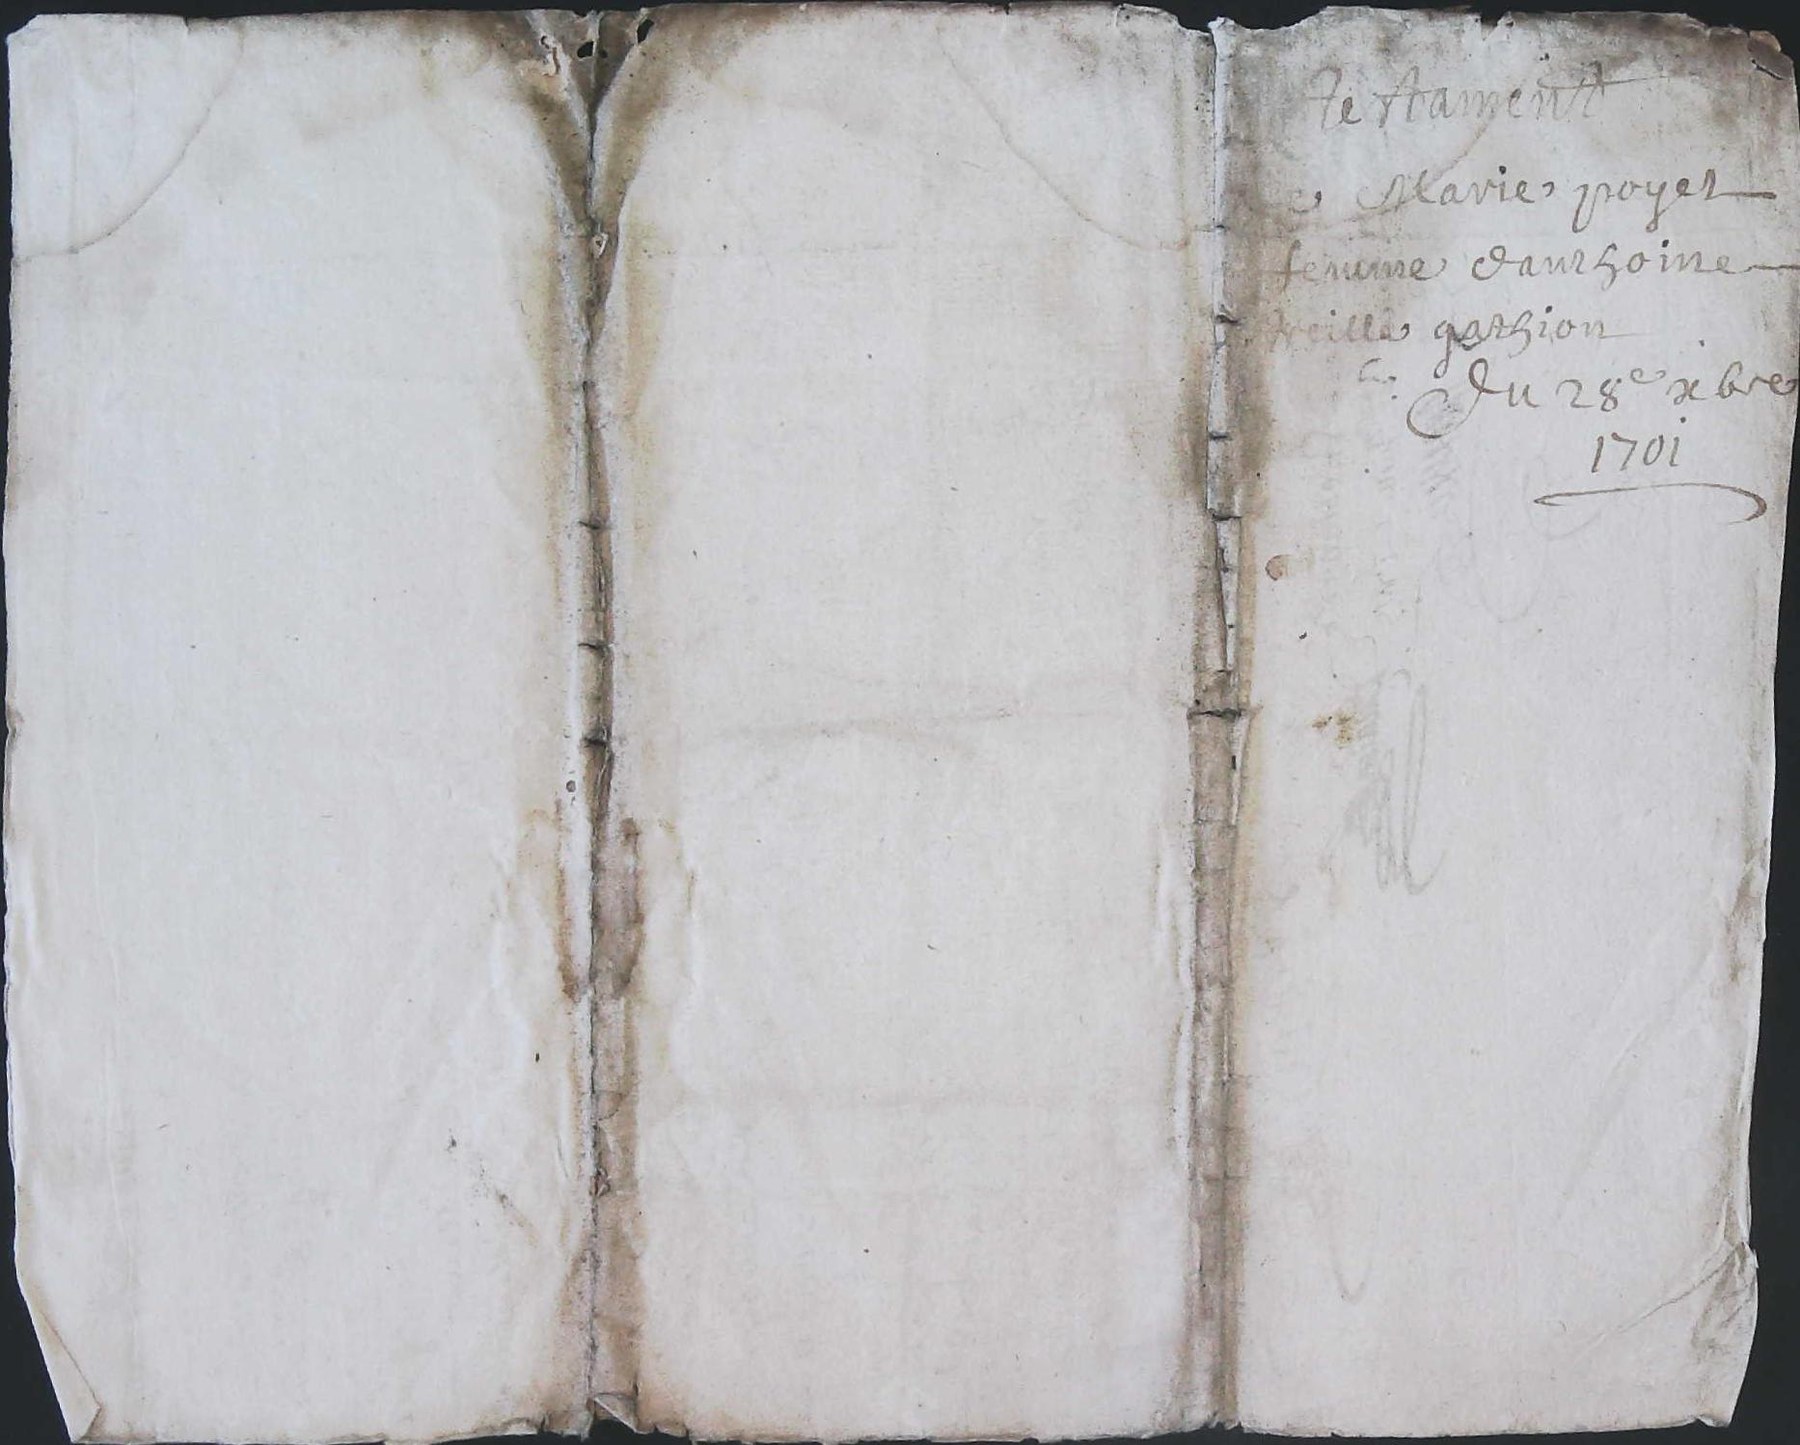 testament
Marie poyet
femme danthoine
treille gathion
Du 28e xbre
1701